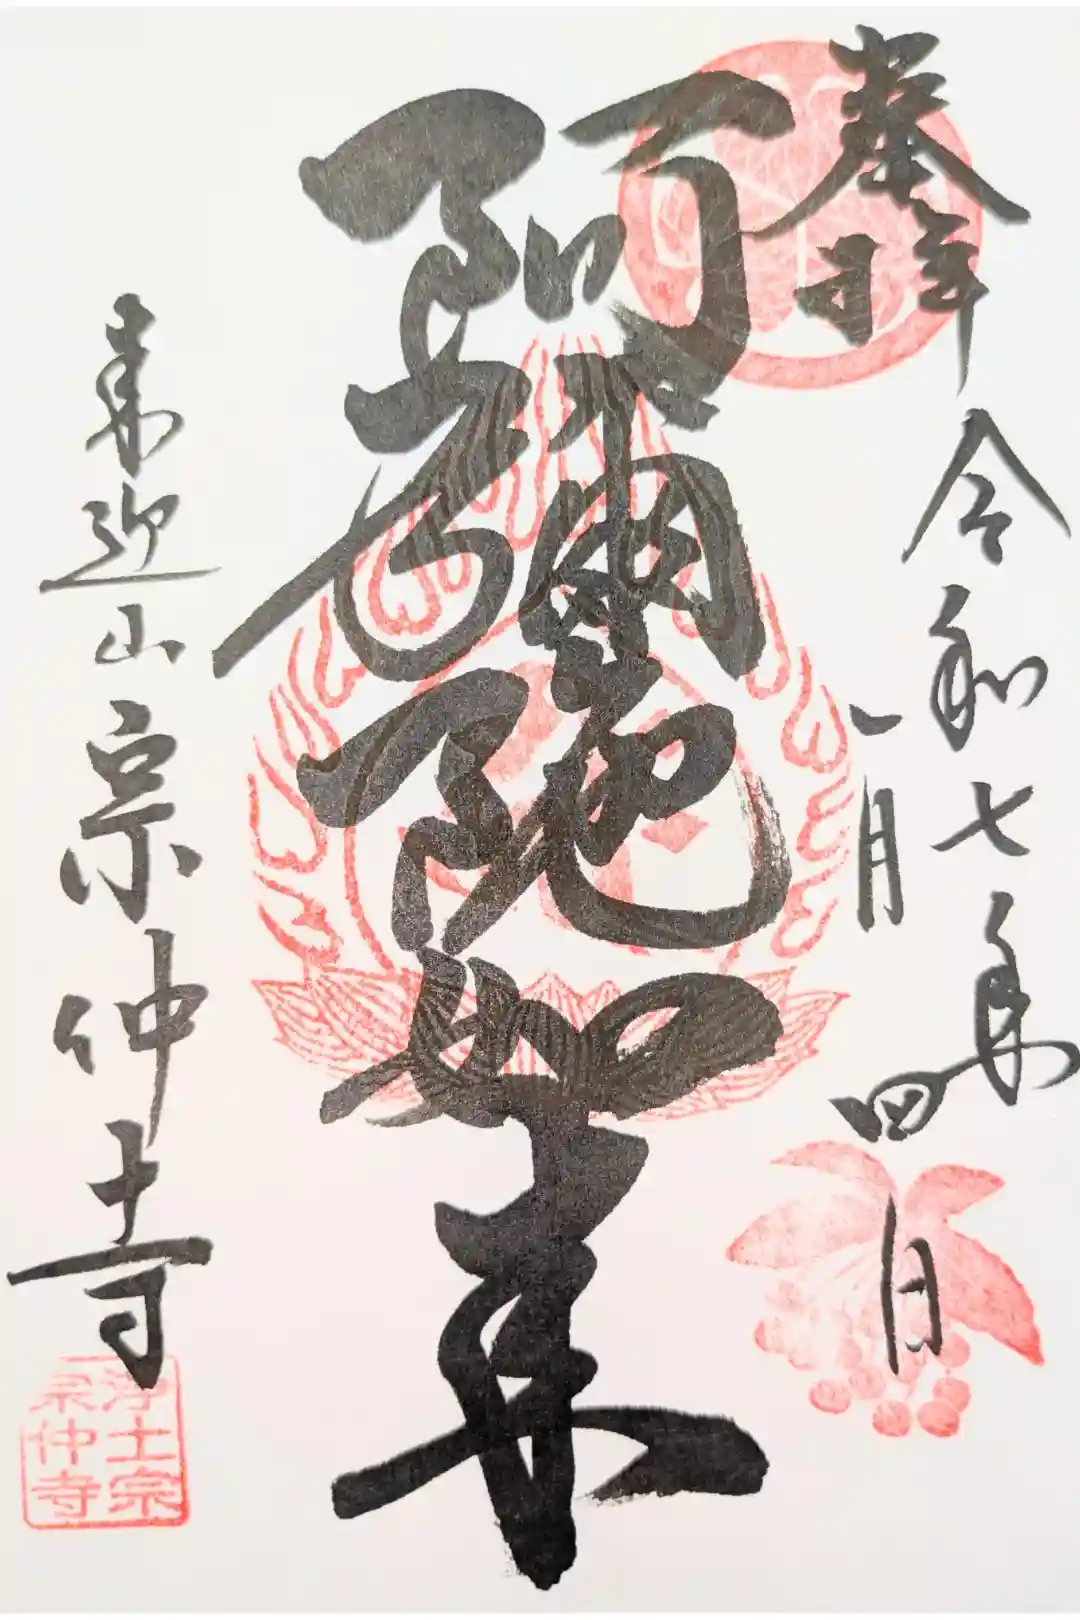 奉拝
令和七年
一月四日
阿彌陀如来
来迎山宗仲寺
浄土宗
宗仲寺